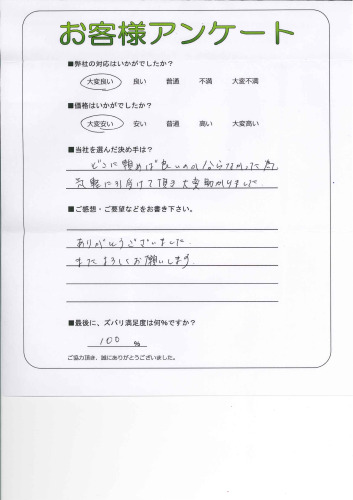 お客様アンケート
■弊社の対応はいかがでしたか？
大変良い 良い 普通 不満 大変不満
■価格はいかがでしたか？
大変安い 安い 普通 高い 大変高い
■当社を選んだ決め手は？
どこに頼めば良いのか分からなかった為
気軽に引受けて頂き大変助かりました
■ご感想・ご要望などをお書き下さい。
ありがとうございました。
またよろしくお願いします。
■最後に、ズバリ満足度は何％ですか？
100 %
ご協力頂き、誠にありがとうございました。